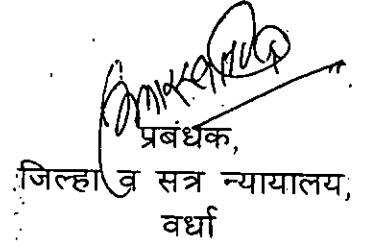 प्रबंधक,
जिल्हा व सत्र न्यायालय,
वर्धा